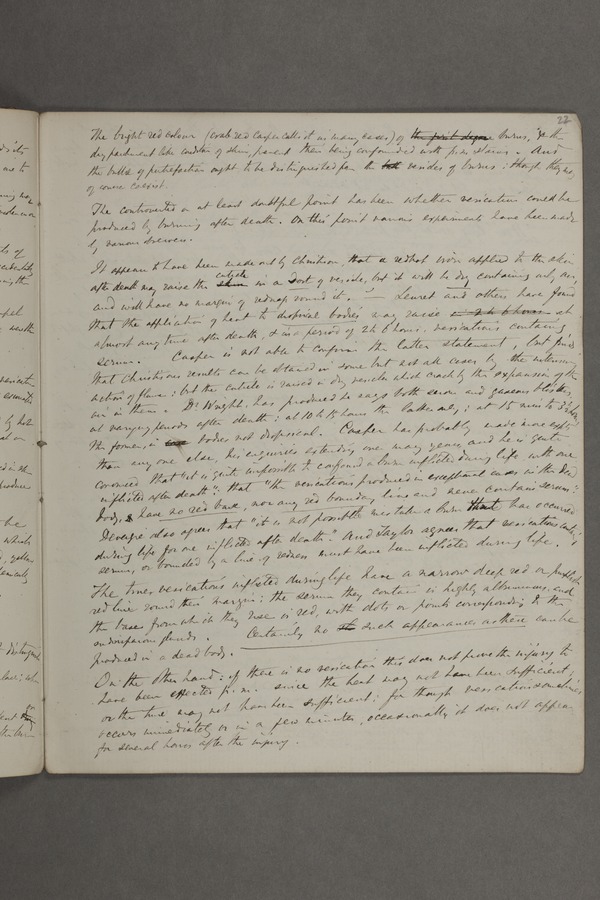 22
The bright red colour (crab red Casper calls it in many cases) of the first degree burns, & the
dry parchment like condition of skin, prevent their being confounded with from stains. And
the bullæ of putrefaction ought to be distinguished from the vesicles of burns: though they may
of course coexist.
The controverted or at least doubtful point has been whether vesication could be
produced by burning after death. On this point various experiments have been made
by various
It appears to have been made out by Christison, that a redhot iron applied to the skin
after death may raise the skin cuticle in a sort of vesicle, but it will be dry containing only air,
and will have no margin of redness round it. — Leuret and others have found
that the application of heat to dropsical bodies may raise in 24 h 6 hours at
almost any time after death, & in a period of 24 h 6 hours, vesications containing
serum. Casper is not able to confirm the latter statement, but finds
that Christisons results can be obtained in some but not all cases by the
action of flame: but the cuticle is raised in dry vesicles which crack by the expansion of the
air in them. Dr Wright, has produced he says both serum and gaseous blisters,
at varying periods after death: at 10 to 15 hours the latter may; at 15 min to 3
the former, in bodies not dropsical. Casper has probably made more expts
than any one else, his enquiries extending over many years, and he is quite
convinced that "it is quite impossible to confound a burn inflicted during life with one
inflicted after death": that "the vesications produced in exceptional cases in the dead
body, have no red base, nor any red boundary line and never contain serum."
Devergie also agrees that "it is not possible to mistake a burn that has occurred
during life for one inflicted after death." And Taylor agrees that vesications containing
serum, or bounded by a line of redness must have been inflicted during life.
The true vesications inflicted during life have a narrow deep red or purplish
red line round their margin: the serum they contain is highly albuminous, and
the base from which they rise is red, with dots or points corresponding to the
sudoriparous glands. Certainly no such appearances as these can be
produced in a dead body.
On the other hand: if there is no vesication this does not prove the injury to
have been effected p.m. since the heat may not have been sufficient;
or the time may not have been sufficient: for though vesication sometimes
occurs immediately or in a few minutes, occasionally it does not appear
for several hours after the injury.